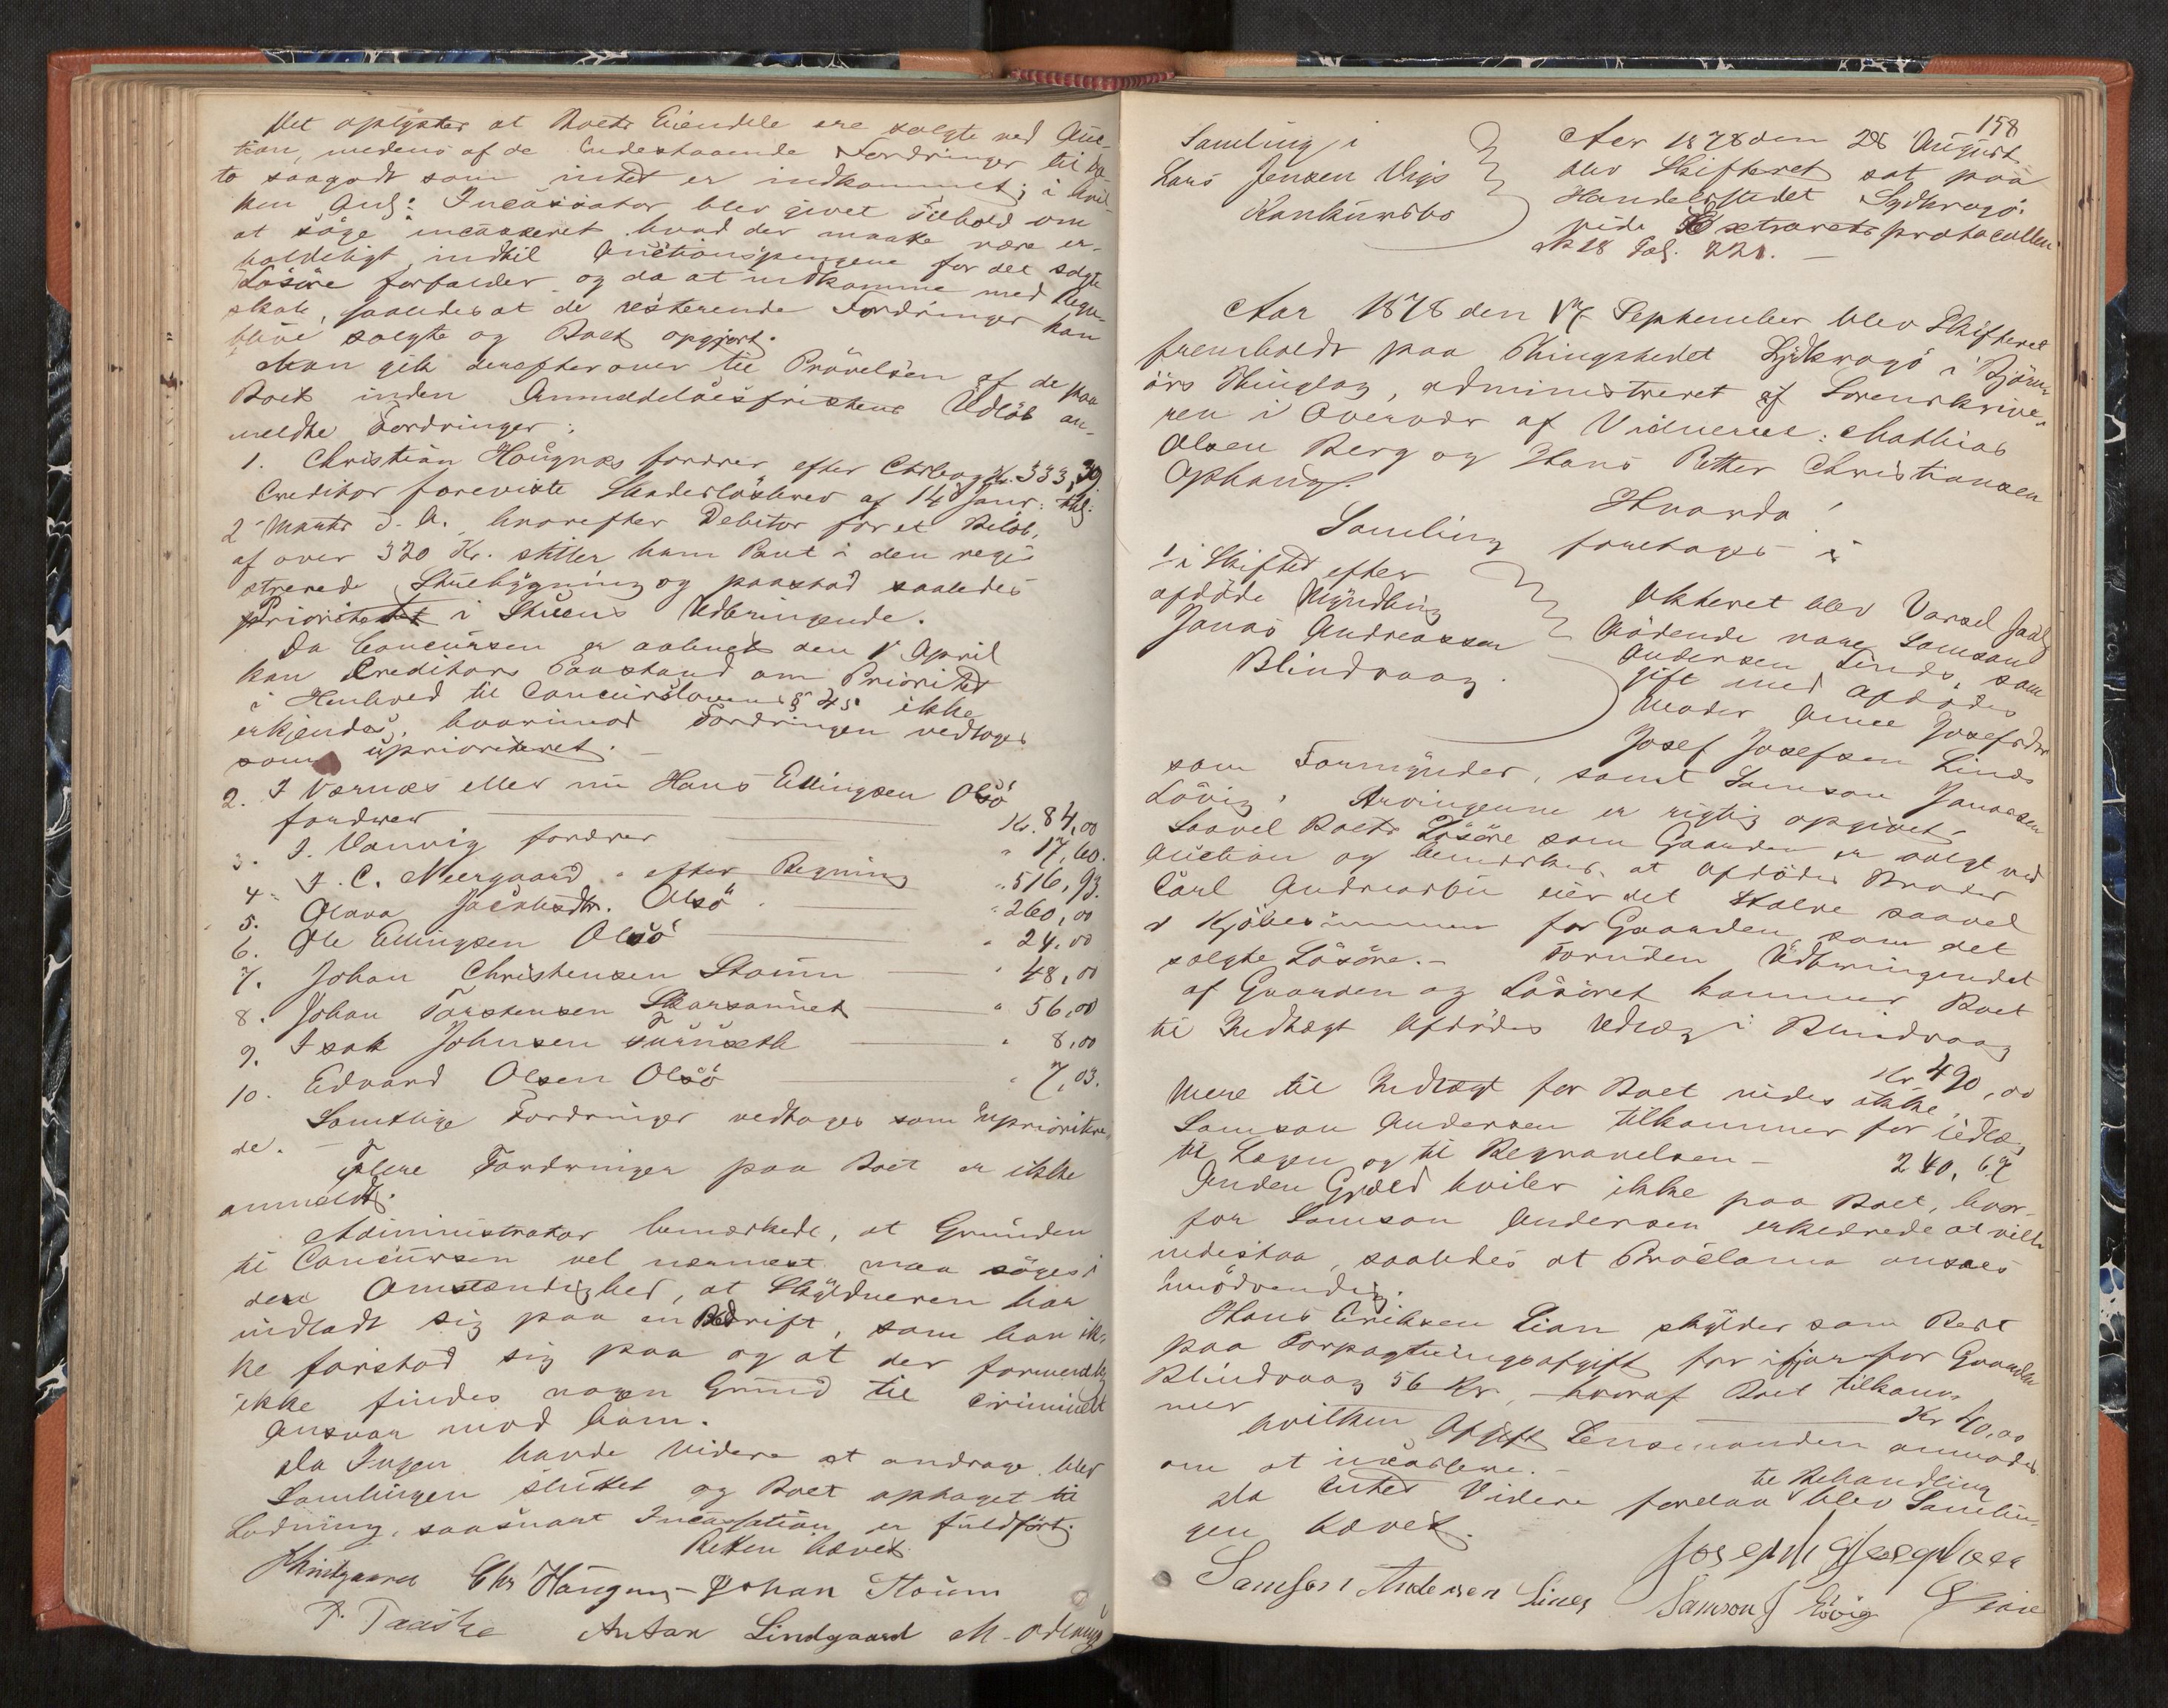 Det oplystes at Boets Eiendele ere solgte ved Auc-
tion, medens af de Indestaaende Fordringer til Da-
to saagodt som intet er indkommet; i hvil-
ken Anl: Incassator blev givet Tilhold om
at söge incasseret hvad der maatte være er-
holdeligt, indtil Auctionspengene for det solgte
Lösöre forfalder og da at indkomme med Regn-
skab, saaledes at de resterende Fordringer kan
blive solgte og Boet opgjort.
Man gik derefter over til Prövelsen af de paa
Boet inden Anmeldelsesfristens Udlöb an-
meldte Fordringer:
1. Christian Haugnæs fordrer efter Kr. 333,39
Creditor foreviste Skadeslösbrev af 14 Janr: thgl:
2 Marts d. A. hvorefter Debitor for et Belöb
af over 320 Kr. stiller ham Pant i den regi-
strerede Stuebygning og paastod saaledes
Prioritet i Stuens Udbringende.
Da Concursen er aabnet den 1 April
kan Creditors Paastand om Prioritet
i Henhold til Concurslovens § 45 ikke
erkjendes, hvorimod Fordringen vedtoges
som uprioriteret.
2. I Værnæs eller nu Hans Ellingsen Olsö
fordrer Kr. 84,00
3. J. Vanvig fordrer " 17,60.
4. J. C. Neergaard " efter Regning " 516,93.
5. Olava Jacobsdtr. Olsö " 260,00
6. Ole Ellingsen Olsö " 24,00
7. Johan Christensen Staum " 48,00
8. Johan Torstensen Skarsaunet " 56,00
9. Isak Johnsen " 8,00
10. Edvard Olsen Olsö " 7,03.
Samtlige Fordringer vedtages som uprioritere-
de.
Flere Fordringer paa Boet er ikke
anmeldt.
Administrator bemærkede, at Grunden
til Concursen vel nærmest maa söges i
den Omstændighed, at Skyldneren har
indladt sig paa en Bedrift, som han ik-
ke forstod sig paa og at der formentlig
ikke findes nogen Grund til criminelt
Ansvar mod ham.
Da Ingen havde Videre at andrage, blev
Samlingen sluttet og Boet optaget til
Lodning, saasnart Incassation er fuldfört.
Retten hævet
Chr Haugnæs Johan Staum
P. Taaske Anton Lindgaard M. Odlaug
158
Samling i
Lars Jensen Vigs
Konkursbo
Aar 1878 den 28 August
blev Skifteret sat paa
Handelsstedet Sydkrogö
vide Extraretsprotocollen
No 18 Fol. 221.
Aar 1878 den 17 September blev Skifteret
fremholdt paa Thingstedet Sydkrogö i Björn-
örs Thinglag, administreret af Sorenskrive-
ren i Overvær af Vidnerne: Mathias
Olsen Berg og Hans Petter Christiansen
Ophaug.
Hvorda!
Samling foretages i
1/ i Skiftet efter
afdöde Myndling
Jonas Andreassen
Blindvaag.
Akteret blev Varsel
Mödende vare Samson
Andersen Linds, som
gift med Afdödes
Moder Anne Josefsdtr
Josef Josefsen Linds
som Formynder, samt Samson Jonassen
Lövig. Arvingerne er rigtig opgivet.
Saavel Boets Lösöre som Gaarden er solgt ved
Auction og bemærkes, at Afdödes Broder
Carl Andreas eier det Halve saavel
i Kjöbesummen for Gaarden som det
solgte Lösöre. Foruden Udbringendet
af Gaarden og Lösöret kommer Boet
til Indtægt Afdödes Udlæg i Blindvaag
Kr 490,00
Mere til Indtægt for Boet vides ikke.
Samson Andersen tilkommer for Udlæg
til Lægen og til Begravelsen 240,62
Anden Gjæld hviler ikke paa Boet, hvor-
for Samson Andersen erklærede at ville
indestaa, saaledes at Proclama ansaaes
unödvendig.
Hans Eriksen Lian skylder som Rest
paa Forpagtningsafgift for ifjor for Gaarden
Blindvaag 56 Kr, hvoraf Boet tilkom-
mer Kr 40,00
hvilken Afgift Lensmanden anmodes
om at incassere.
Da Intet Videre forelaa til Behandling blev Samlin-
gen hævet.
Joseph Josephsen
Samson Andersen Linds Samson J Lövig